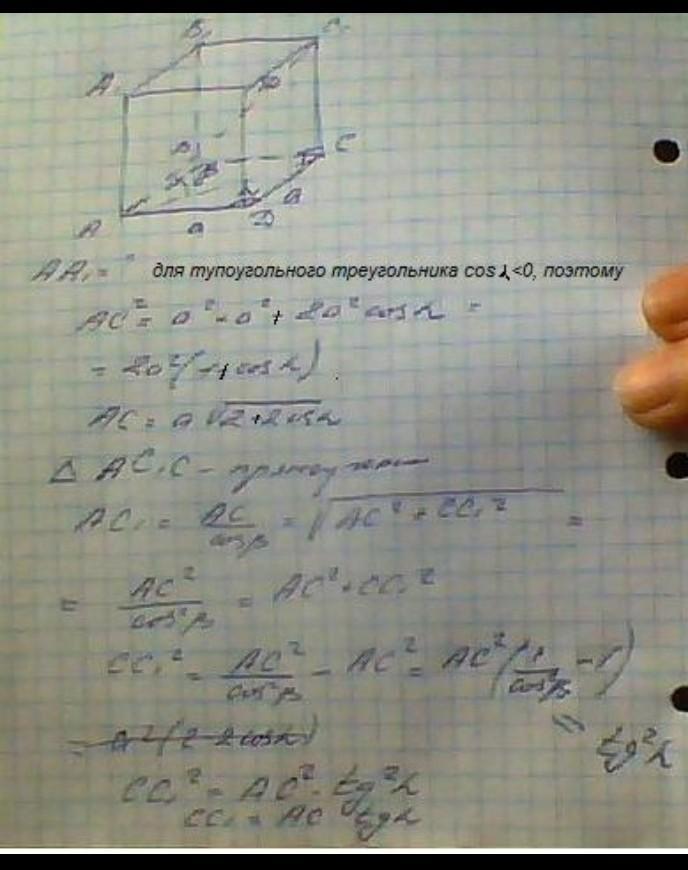 B₁ C₁
A₁
B C
A a D a
AA₁ = для тупоугольного треугольника cos α<0, поэтому
AC² = a² + a² + 2a² cos α =
= 2a²(1+cos α)
AC = a √2+2cos α
Δ AC₁C -
AC₁ = AC/cosβ = √AC² + CC₁² =
= AC²/cos²β = AC² + CC₁²
CC₁² = AC²/cos²β - AC² = AC²(1/cos²β - 1)
= a²(2 2cosα) = tg²α
CC₁² = AC² · tg²α
CC₁ = AC tgα